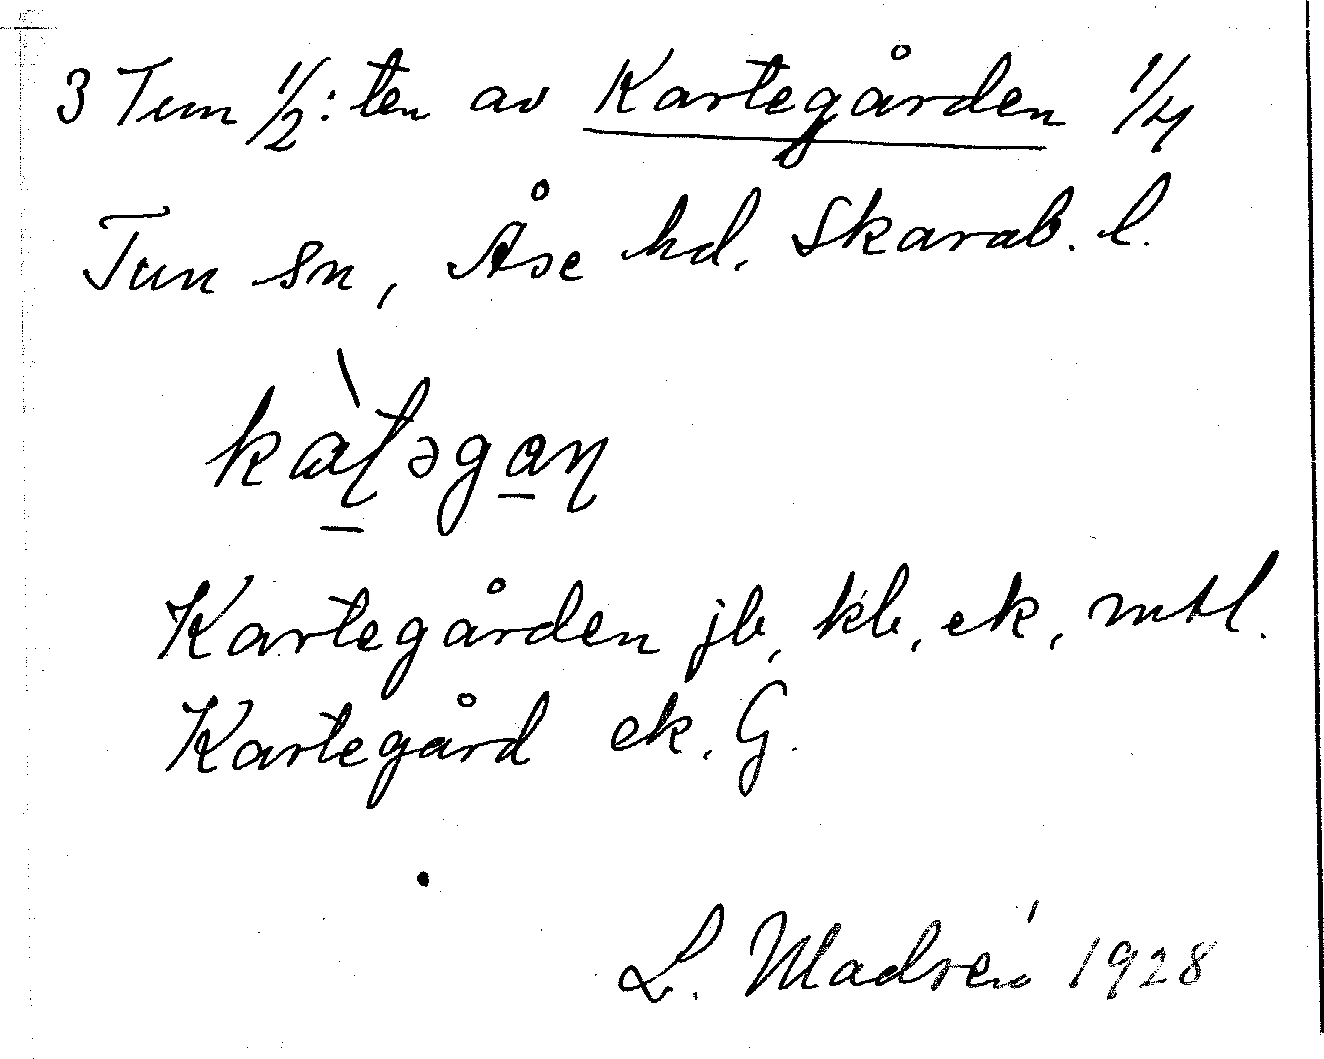 3 Tun 1/2:ten av Kartegården 1/4
Tun sn, Åse hd. Skarab. l.
kàʈəgaɳ
Kartegården jb, kb, ek, mtl.
Kartegård ek. G.
L. Madrén 1928